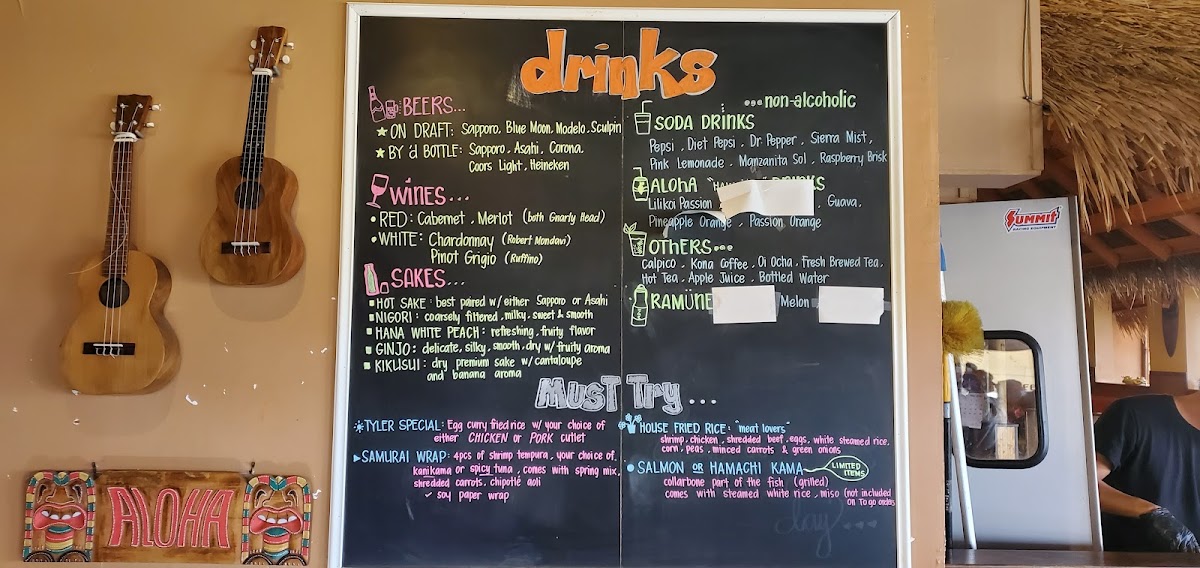 drinks
BEERS...
ON DRAFT: Sapporo, Blue Moon, Modelo, Sculpin
BY 'd BOTTLE: Sapporo, Asahi, Corona,
Coors Light, Heineken
WINES...
RED: Cabernet, Merlot (both Gnarly Head)
WHITE: Chardonnay (Robert Mondavi)
Pinot Grigio (Ruffino)
SAKES...
HOT SAKE: best paired w/ either Sapporo or Asahi
NIGORI: coarsely filtered, milky, sweet & smooth
HANA WHITE PEACH: refreshing, fruity flavor
GINJO: delicate, silky, smooth, dry w/ fruity aroma
KIKUSUI: dry premium sake w/ cantaloupe
and banana aroma
...non-alcoholic
SODA DRINKS
Pepsi, Diet Pepsi, Dr Pepper, Sierra Mist,
Pink Lemonade, Manzanita Sol, Raspberry Brisk
ALOHA DRINKS
Lilikoi Passion , Guava,
Pineapple Orange, Passion Orange
OTHERS...
Calpico, Kona Coffee, Oi Ocha, Fresh Brewed Tea,
Hot Tea, Apple Juice, Bottled Water
RAMUNE Melon
MUST TRY...
TYLER SPECIAL: Egg curry fried rice w/ your choice of
either CHICKEN or PORK cutlet
SAMURAI WRAP: 4pcs of shrimp tempura, your choice of
kanikama or spicy tuna, comes with spring mix,
shredded carrots, chipotlé aoli
✓ soy paper wrap
HOUSE FRIED RICE: "meat lovers"
shrimp, chicken, shredded beef, eggs, white steamed rice,
corn, peas, minced carrots & green onions
SALMON OR HAMACHI KAMA LIMITED ITEMS
collarbone part of the fish (grilled)
comes with steamed white rice, miso (not included
on To go orders
day...
ALOHA
SUMMIT
RACING EQUIPMENT